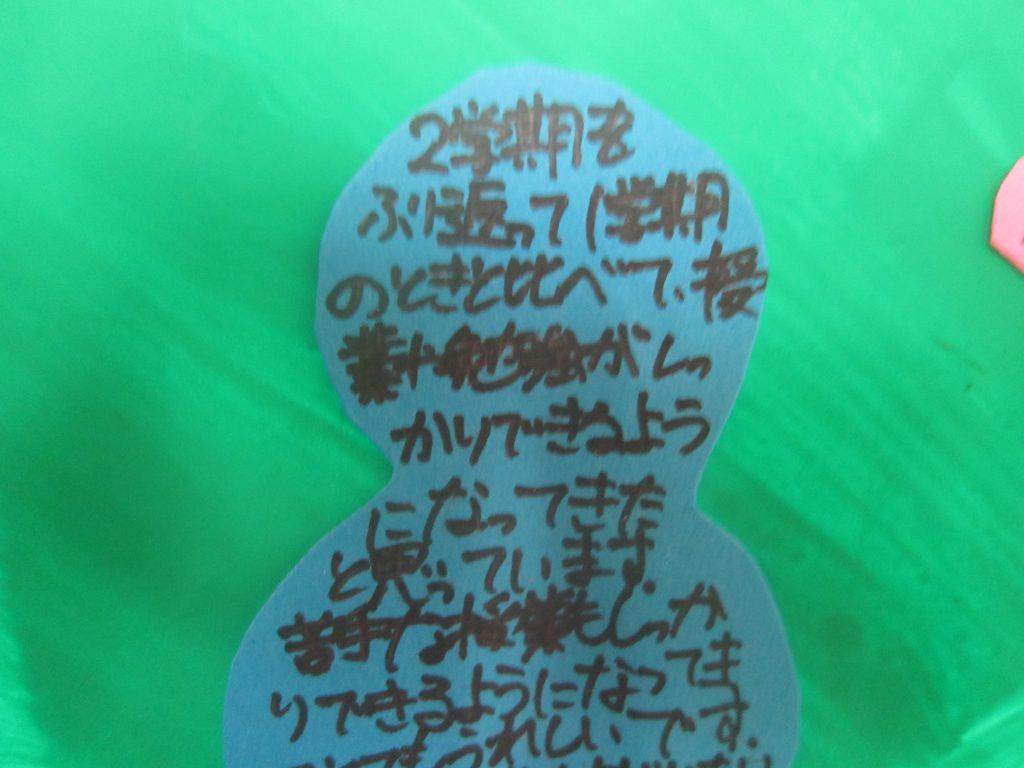 2学期を
ふり返って1学期
のときと比べて、授
業や勉強がしっ
かりできるよう
になってきた
と思っています。
苦手な授業もしっか
りできるようになってきま
とてもうれしいです。